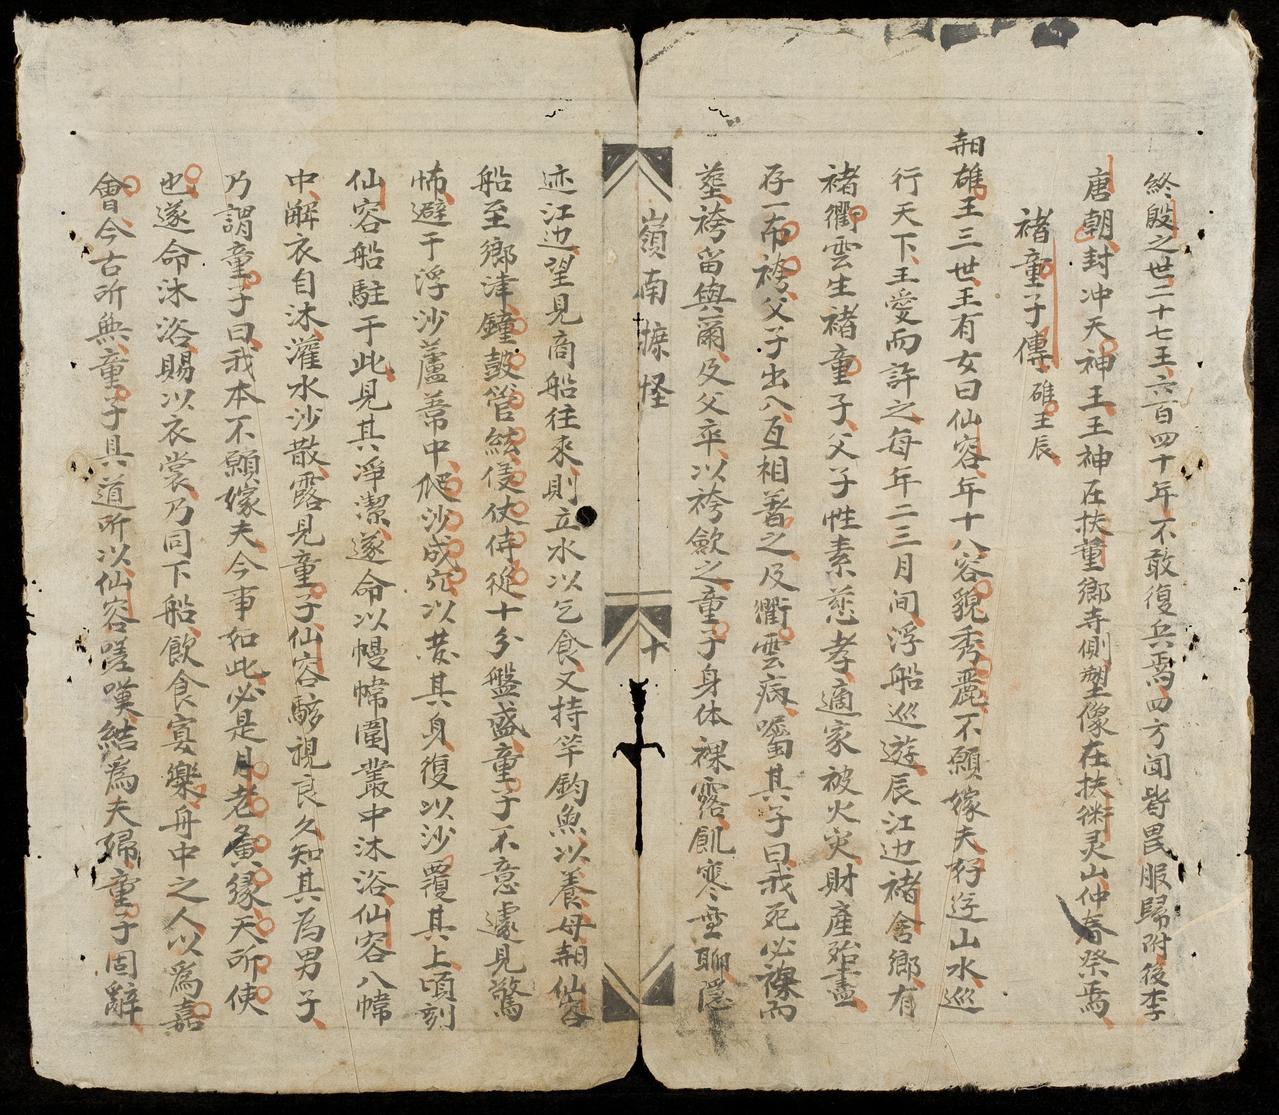 終殷之世二十七王六百四十年不敢復兵焉四方闻皆畏服歸附後李
唐朝封冲天神王王神在扶董鄉寺側塑像在扶灵山仲春祭焉
褚童子傳碓王辰
雄王三世王有女曰仙容年十八容貌秀麗不願嫁夫好遊山水巡
行天下王愛而許之每年二三月间浮船巡遊辰江边褚舍鄉有
褚衢雲生褚童子父子性素慈孝適家被火灾財產殆盡
存一布袴父子出入互相著之及衢雲病囑其子曰我死必裸而
葬袴畄與爾及父卒以袴歛之童子身体裸露飢寒無聊隱
嶺南摭怪
十
迹江边望見商船往來則立水以乞食又持竿釣魚以養母仙容
船至鄉津鐘鼓管絃儀仗侍從十分盤盛童子不意遽見驚
怖避于浮沙蘆葦中爬沙成穴以其身復以沙覆其上頃刻
仙容船駐于此見其凈潔遂命以幔幃圍叢中沐浴仙容八幃
中解衣自沐灌水沙散露見童子仙容駭視良久知其為男子
乃謂童子曰我本不願嫁夫今事如此必是月老緣天所使
也遂命沐浴賜以衣裳乃同下船飲食宴樂舟中之人以為嘉
會今古所無童子具道所以仙容嗟嘆結為夫婦童子固辭